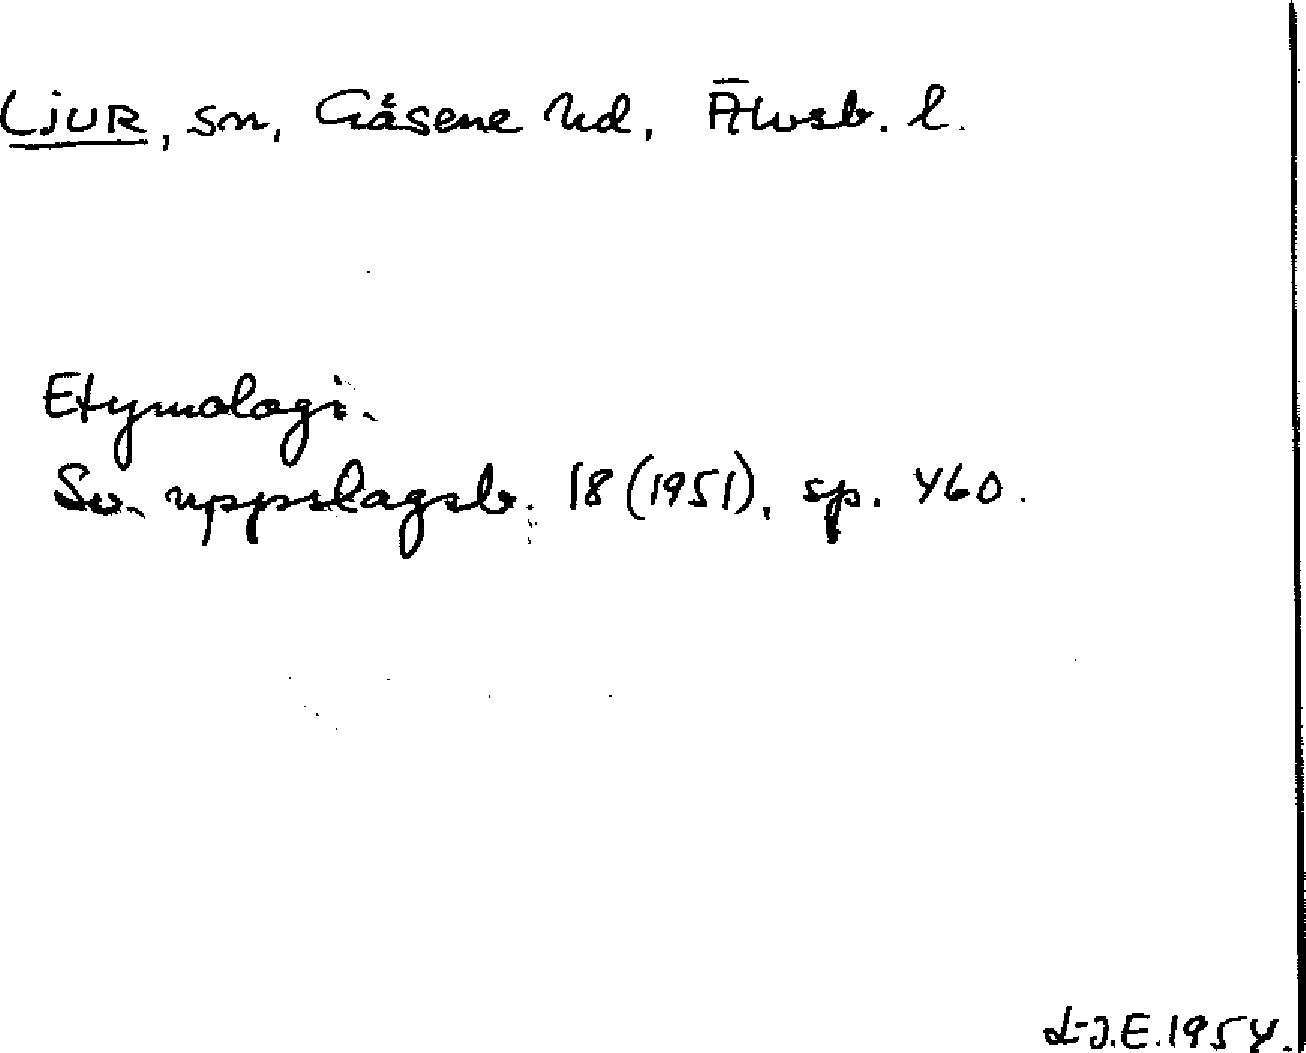 LJUR, sn, Gäsene hd, Älvsb. l.
Etymologi.
Sv. uppslagsb. 18 (1951), sp. 460.
L-J.E. 1954.